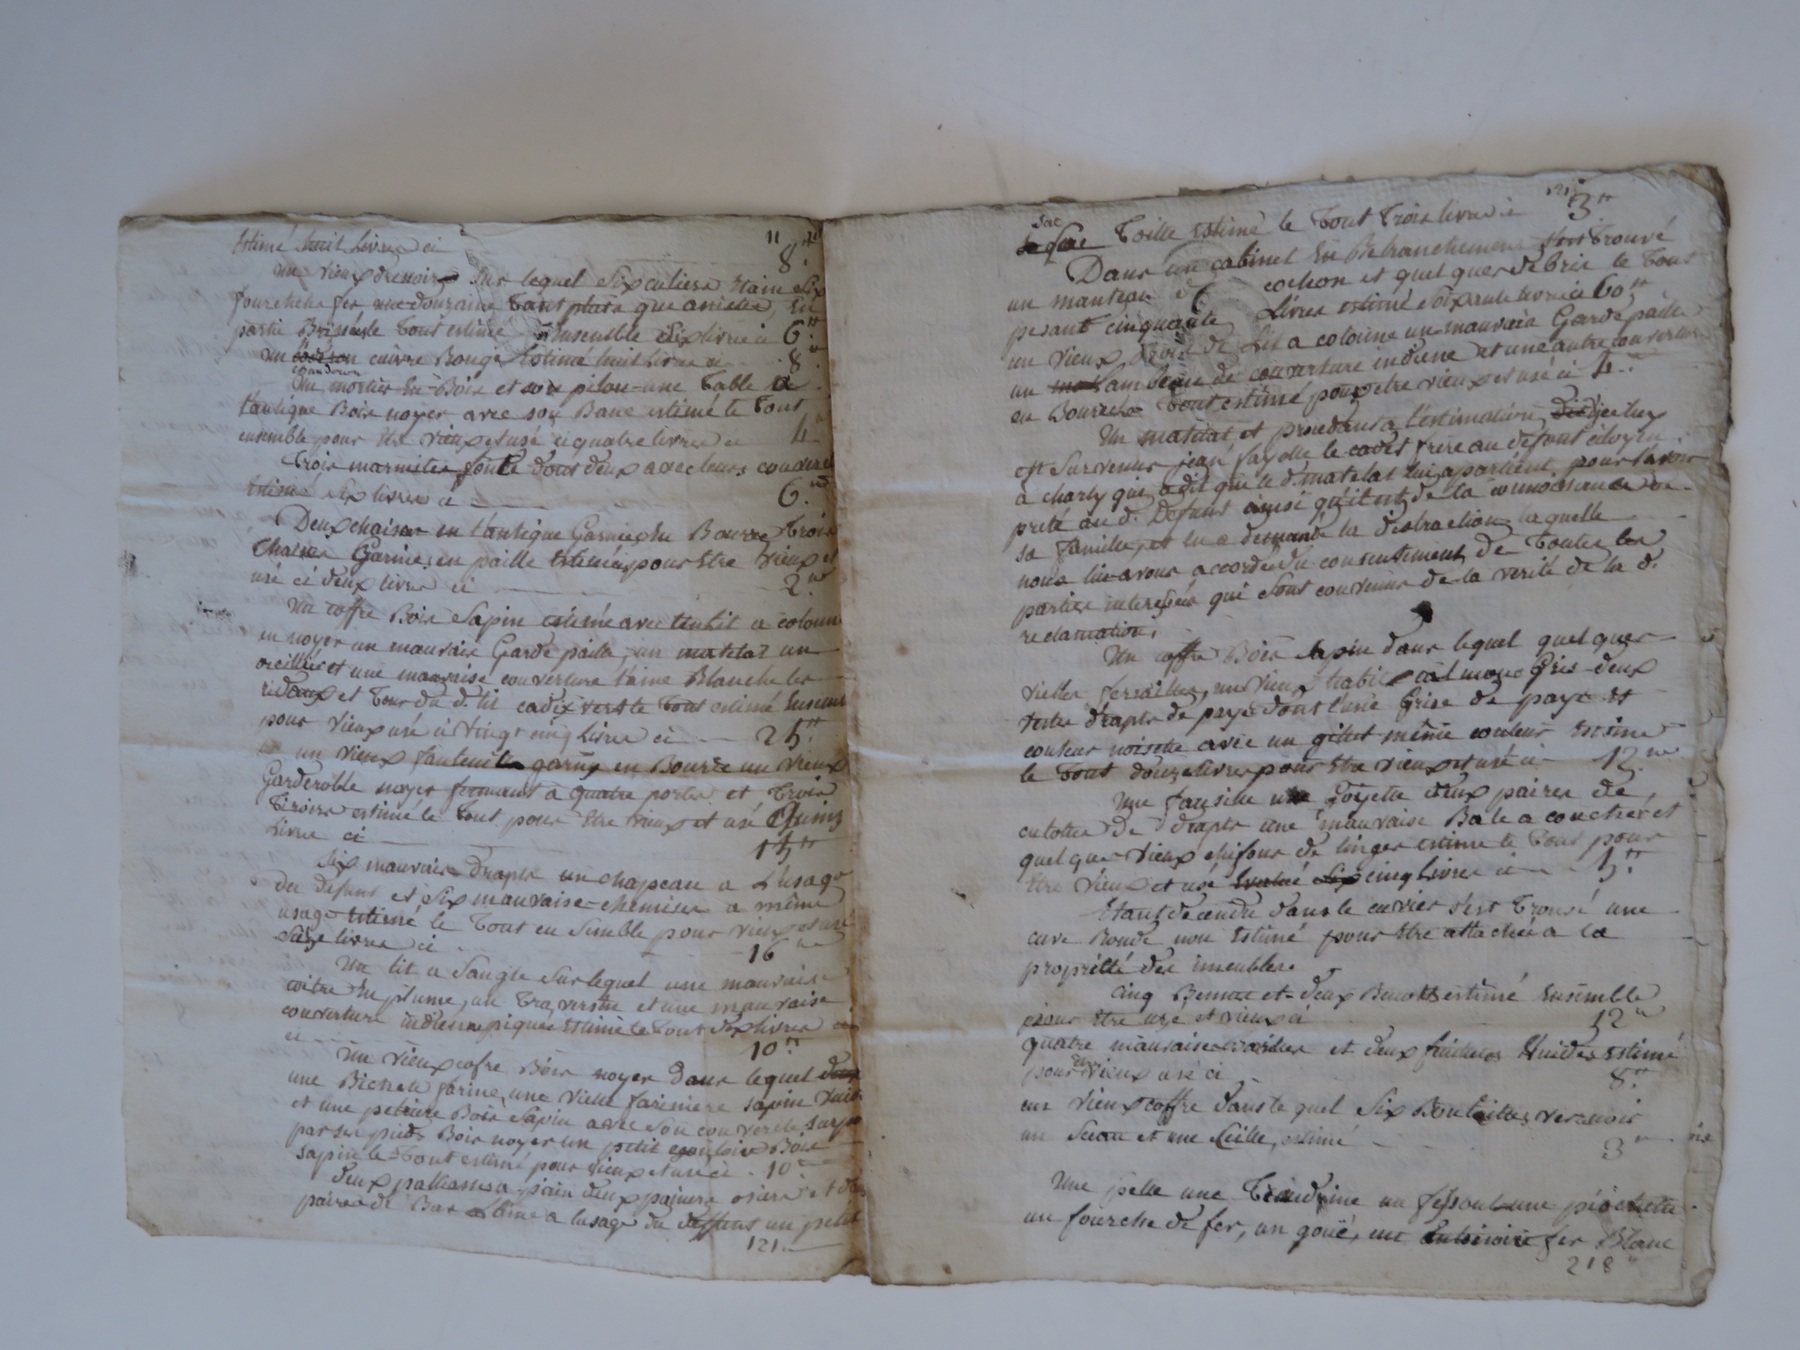 Estimé huit Livres ci 8.tt
un vieux dressoir sur lequel six culiere Etain six
fourchette fer une douzaine tant plats que assiette, En
partie Brisées le tout estimé Ensemble six livre à 6.tt
un cuivre Rouge Estimé huit Livre ci 8.
chaudron
Un mortier En Bois et son pilon une Table a
l'antique Bois noyer avec son Banc estimé le tout
ensemble pour être vieux et usé ci quatre livre ci 4.tt
Trois marmites fonte dont deux avec leurs couvercle
Estimé six livres ci 6.tt
Deux chaises en l'antique Garnie En Bourre Trois
Chaises Garnies en paille Estimés pour Etre vieux et
usé ci deux livre ci 2.tt
Un coffre Bois Sapin estimé avec un lit a colonne
en noyer un mauvais Garde paille, un matelat un
et une mauvaise couverture laine Blanche les
rideaux et tour du d. lit cadix vert le tout estimé Ensemble
pour vieux usé à vingt cinq livre ci 25.tt
un vieux fauteuil garny en Bourre un vieux
Garderobbe noyer fermant à quatre portes et Trois
Tiroirs estimé le tout pour Etre vieux et usé Quinze
Livre ci 15.tt
Six mauvais Draps un chapeau a L'usage
du defunt et Six mauvaise chemises a même
usage Estimé le tout en semble pour vieux et usé
Saize livre ci 16
Un lit a Sangle Sur lequel une mauvaise
coitre En plume, un Traversin et une mauvaise
couverture indienne piquée Estimé le tout Dix livres
ci 10.tt
Un vieux cofre Bois noyer dans lequel
une Bichete farine, une vielle farinière sapin
et une petriere Bois Sapin avec son couvercle
par ses pieds Bois noyer un petit Bois
sapin le tout estimé pour vieux et usé ci 10.tt
deux paillasses a pain deux paniers osiere et deux
paires de Bas Laine a lusage du deffunt un petit
121.
sac
Toille Estimé le tout Trois livre ci 3.tt
Dans un cabinet En Retranchement s'est trouvé
un manteau de cochon et quelques debris le tout
pesant cinquante Livres estimé soixante livre ci 60.tt
un vieux Bois de Lit a colonne un mauvais Garde paille
un de couverture indiene et une autre couverture
en Bourre tout estimé pour etre vieux et usé ci 4.
Un matelat et procedant a l'estimation
Est Survenus jean fayolle le cadet frère au defunt citoyen
a charly qui a dit que le d. matelat lui apartient pour l'avoir
preté au d. Defunt ainsi qu'il est de la connoissance de
sa famille, et en a demandé la distraction laquelle
nous lui avons accordée du consentement de toutes les
parties interessées qui sont convenus de la verité de la d.
reclamation.
Un coffre Bois sapin dans lequel quelques
vielles ferrailles, un vieux habit calmouc Gris deux
veste drapts de pays dont l'une Grise de pays et
couleur noisette avec un gillet même couleur Estimé
le tout douze livres pour Etre vieux et usé ci 12.tt
Une faucille une goyette deux paires de
culotte de drapts une mauvaise Bale a coucher et
quelques vieux chifons de linges estimé le tout pour
Etre vieux et usé cinq Livres ci 5.tt
Etant decendu dans le cuvier s'est trouvé une
cuve Ronde non Estimé pour Etre attachée a la
proprieté des imeubles.
Cinq Bennes et deux Benots estimé Ensemble
pour Etre usé et vieux ci 12.tt
quatre mauvaise et deux feuilletes Vuides Estimé
pour vieux usé ci 8.tt
un vieux coffre dans lequel Six Bouteilles verre noir
un Sceau et une Seille, estimé 3.tt
Une pelle une un fessoul une piochette
un fourche de fer, un gouë, une fer Blanc
218.tt